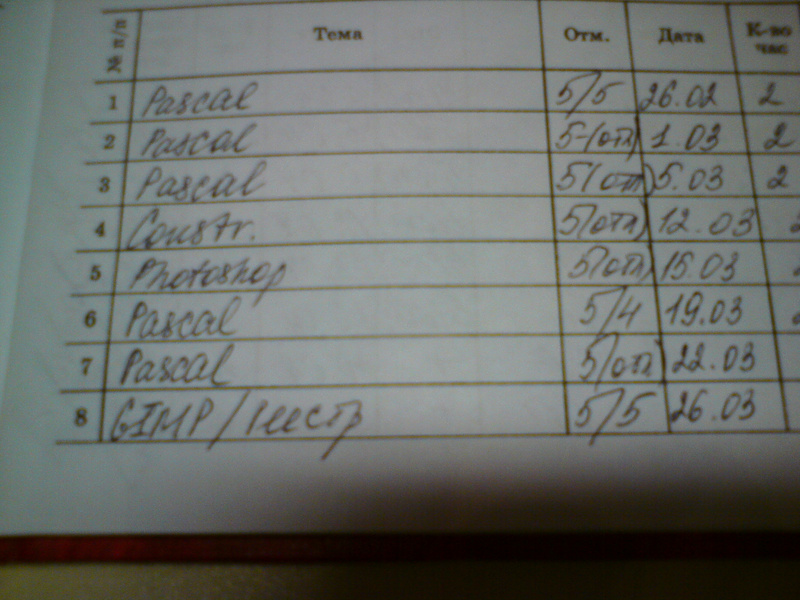 № п/п Тема Отм. Дата К-во час
1 Pascal 5/5 26.02 2
2 Pascal 5-(отл) 1.03 2
3 Pascal 5(отл) 5.03 2
4 Constr. 5(отл) 12.03
5 Photoshop 5(отл) 15.03
6 Pascal 5/4 19.03
7 Pascal 5(отл) 22.03
8 GIMP/Реестр 5/5 26.03